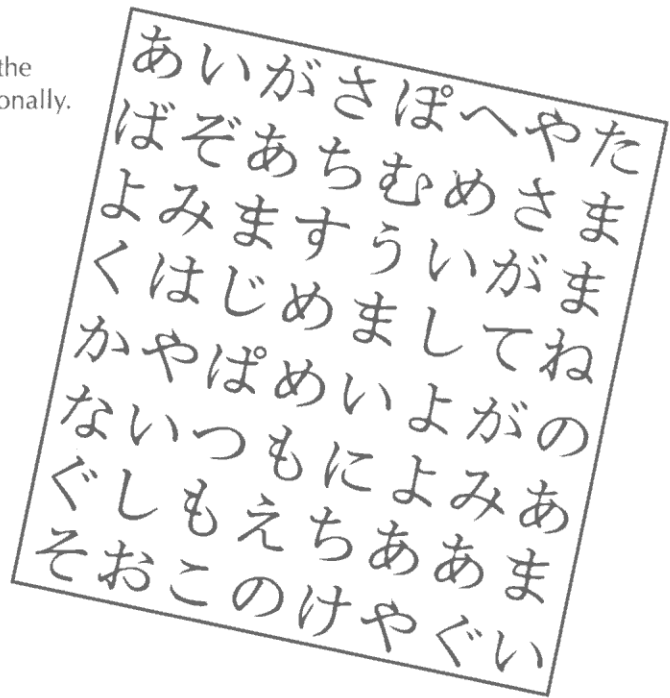 the
onally.
あいがさぽへやた
ばぞあちむめさま
よみますういがま
くはじめましてね
かやぱめいよがの
ないつもによみあ
ぐしもえちああま
そおこのけやぐい